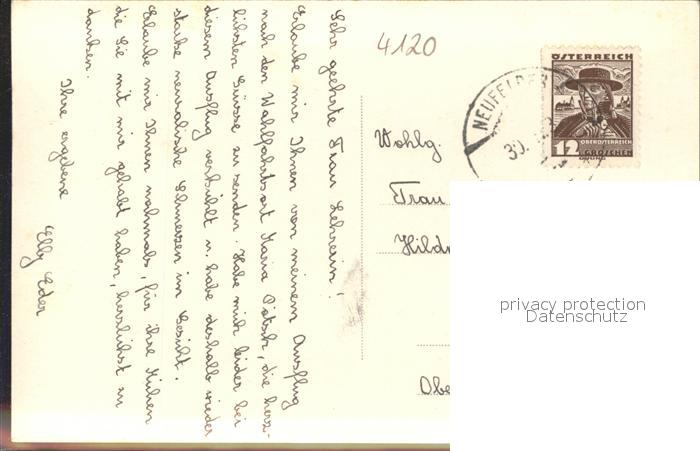 Sehr geehrte Frau Lehrerin!
Erlaube mir Ihnen von meinem Ausflug
nach den Wahlfahrtsort Maria Pötsch, die herz-
lichsten Grüsse zu senden. Habe mich leider bei
diesem Ausflug verkühlt u. habe deshalb wieder
starke neuralische Schmerzen im Gesicht.
Erlaube mir Ihnen nochmals, für ihre Mühen
die Sie mit mir gehabt haben, herzlichst zu
danken.
Ihre ergebene
Elly Eder
4120
Wohlg.
Frau
Hildr
Obe
NEUFELDE
30.
ÖSTERREICH
12
OBERÖSTERREICH
GROSCHEN
privacy protection
Datenschutz